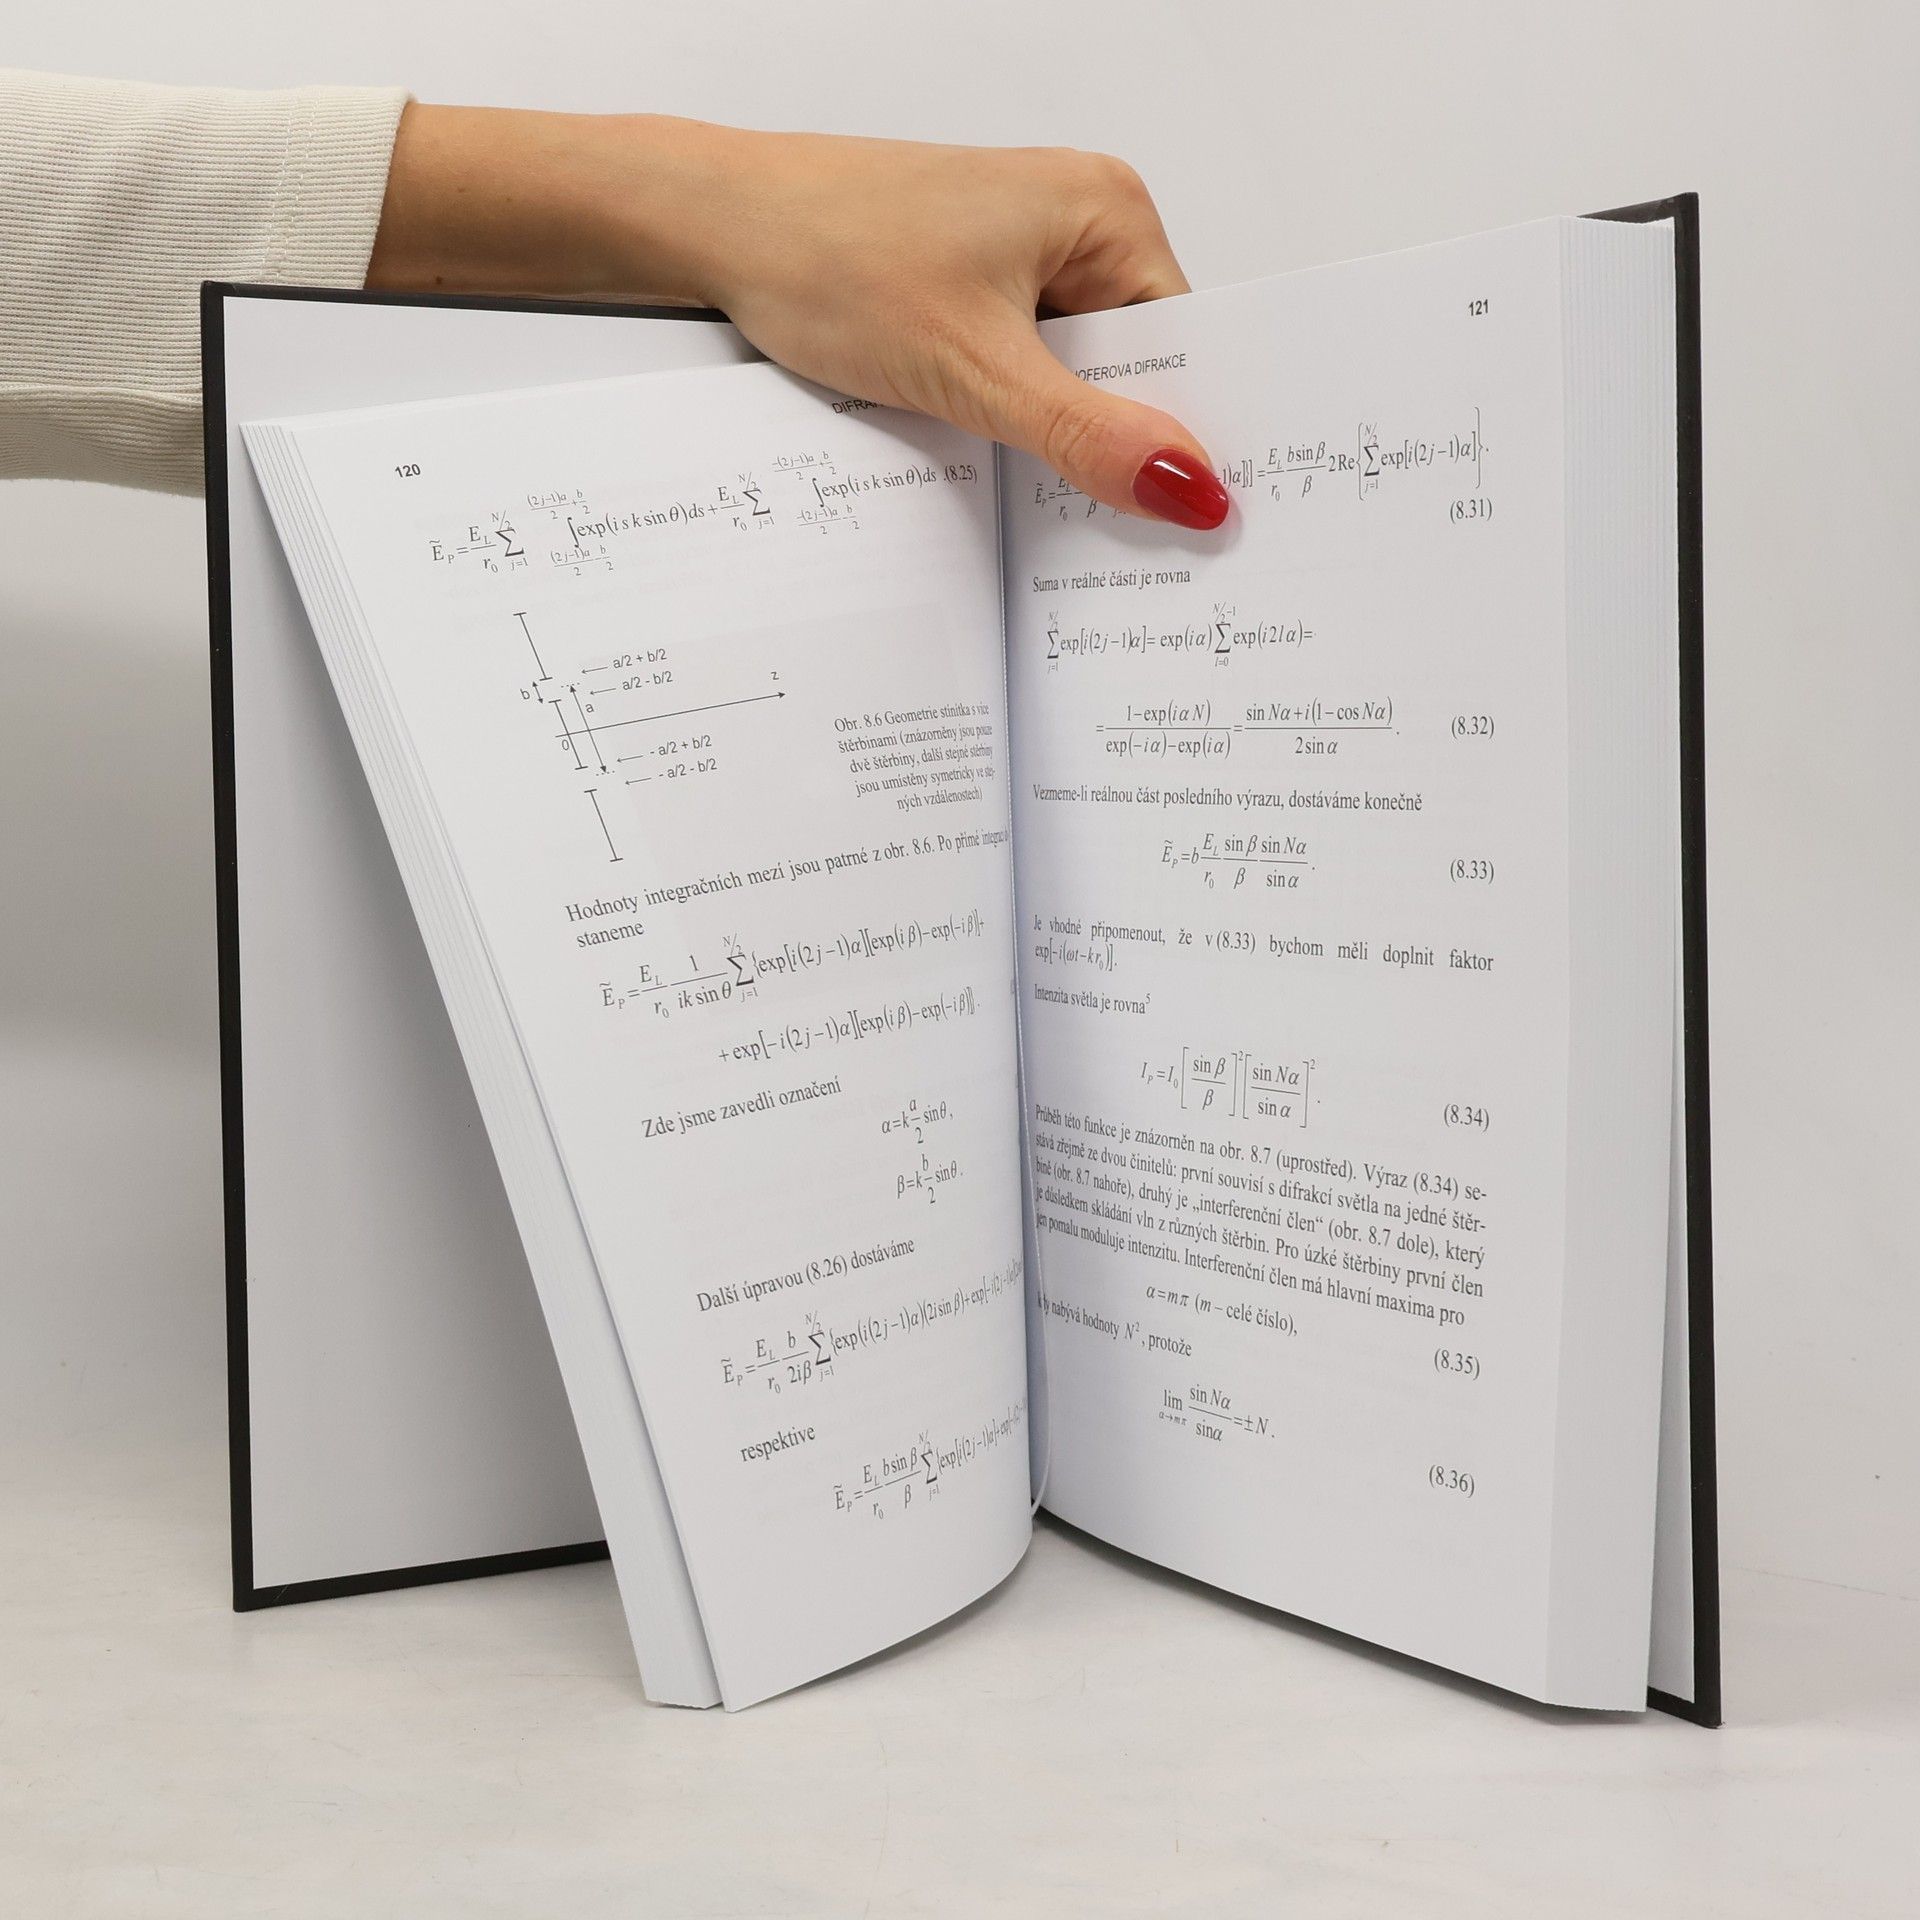 120
Ẽ_P = E_L/r_0 ∑_{j=1}^{N/2} ∫_{(2j-1)a/2 - b/2}^{(2j-1)a/2 + b/2} exp(i s k sin θ) ds + E_L/r_0 ∑_{j=1}^{N/2} ∫_{-(2j-1)a/2 - b/2}^{-(2j-1)a/2 + b/2} exp(i s k sin θ) ds .(8.25)
a/2 + b/2
a/2 - b/2
b
a
z
0
- a/2 + b/2
- a/2 - b/2
Obr. 8.6 Geometrie stínítka s více
štěrbinami (znázorněny jsou pouze
dvě štěrbiny, další stejné štěrbiny
jsou umístěny symetricky ve stej-
ných vzdálenostech)
Hodnoty integračních mezí jsou patrné z obr. 8.6. Po přímé
staneme
Ẽ_P = E_L/r_0 1/(ik sin θ) ∑_{j=1}^{N/2} {exp[i(2j-1)α][exp(iβ)-exp(-iβ)]+
+ exp[-i(2j-1)α][exp(iβ)-exp(-iβ)]} .
Zde jsme zavedli označení
α = k a/2 sin θ ,
β = k b/2 sin θ .
Další úpravou (8.26) dostáváme
Ẽ_P = E_L/r_0 b/(2iβ) ∑_{j=1}^{N/2} {exp(i(2j-1)α)(2i sin β)+exp[-i(2j-1)α]
respektive
Ẽ_P = E_L/r_0 b sin β/β ∑_{j=1}^{N/2} {exp[i(2j-1)α]+exp[-i(2j-1)
121
DIFRAKCE
Ẽ_P = -1)α]}] = E_L/r_0 b sin β/β 2 Re{∑_{j=1}^{N/2} exp[i(2j-1)α]}.
(8.31)
Suma v reálné části je rovna
∑_{j=1}^{N/2} exp[i(2j-1)α] = exp(iα) ∑_{l=0}^{N/2 -1} exp(i2lα) =
= (1-exp(iαN))/(exp(-iα)-exp(iα)) = (sin Nα + i(1-cos Nα))/(2 sin α) . (8.32)
Vezmeme-li reálnou část posledního výrazu, dostáváme konečně
Ẽ_P = b E_L/r_0 sin β/β sin Nα/sin α . (8.33)
Je vhodné připomenout, že v (8.33) bychom měli doplnit faktor
exp[-i(ωt-kr_0)].
Intenzita světla je rovna⁵
I_P = I_0 [sin β/β]² [sin Nα/sin α]² . (8.34)
Průběh této funkce je znázorněn na obr. 8.7 (uprostřed). Výraz (8.34) se-
stává zřejmě ze dvou činitelů: první souvisí s difrakcí světla na jedné štěr-
bině (obr. 8.7 nahoře), druhý je „interferenční člen“ (obr. 8.7 dole), který
je důsledkem skládání vln z různých štěrbin. Pro úzké štěrbiny první člen
jen pomalu moduluje intenzitu. Interferenční člen má hlavní maxima pro
α = mπ (m – celé číslo), (8.35)
kdy nabývá hodnoty N², protože
lim_{α→mπ} sin Nα/sin α = ±N . (8.36)